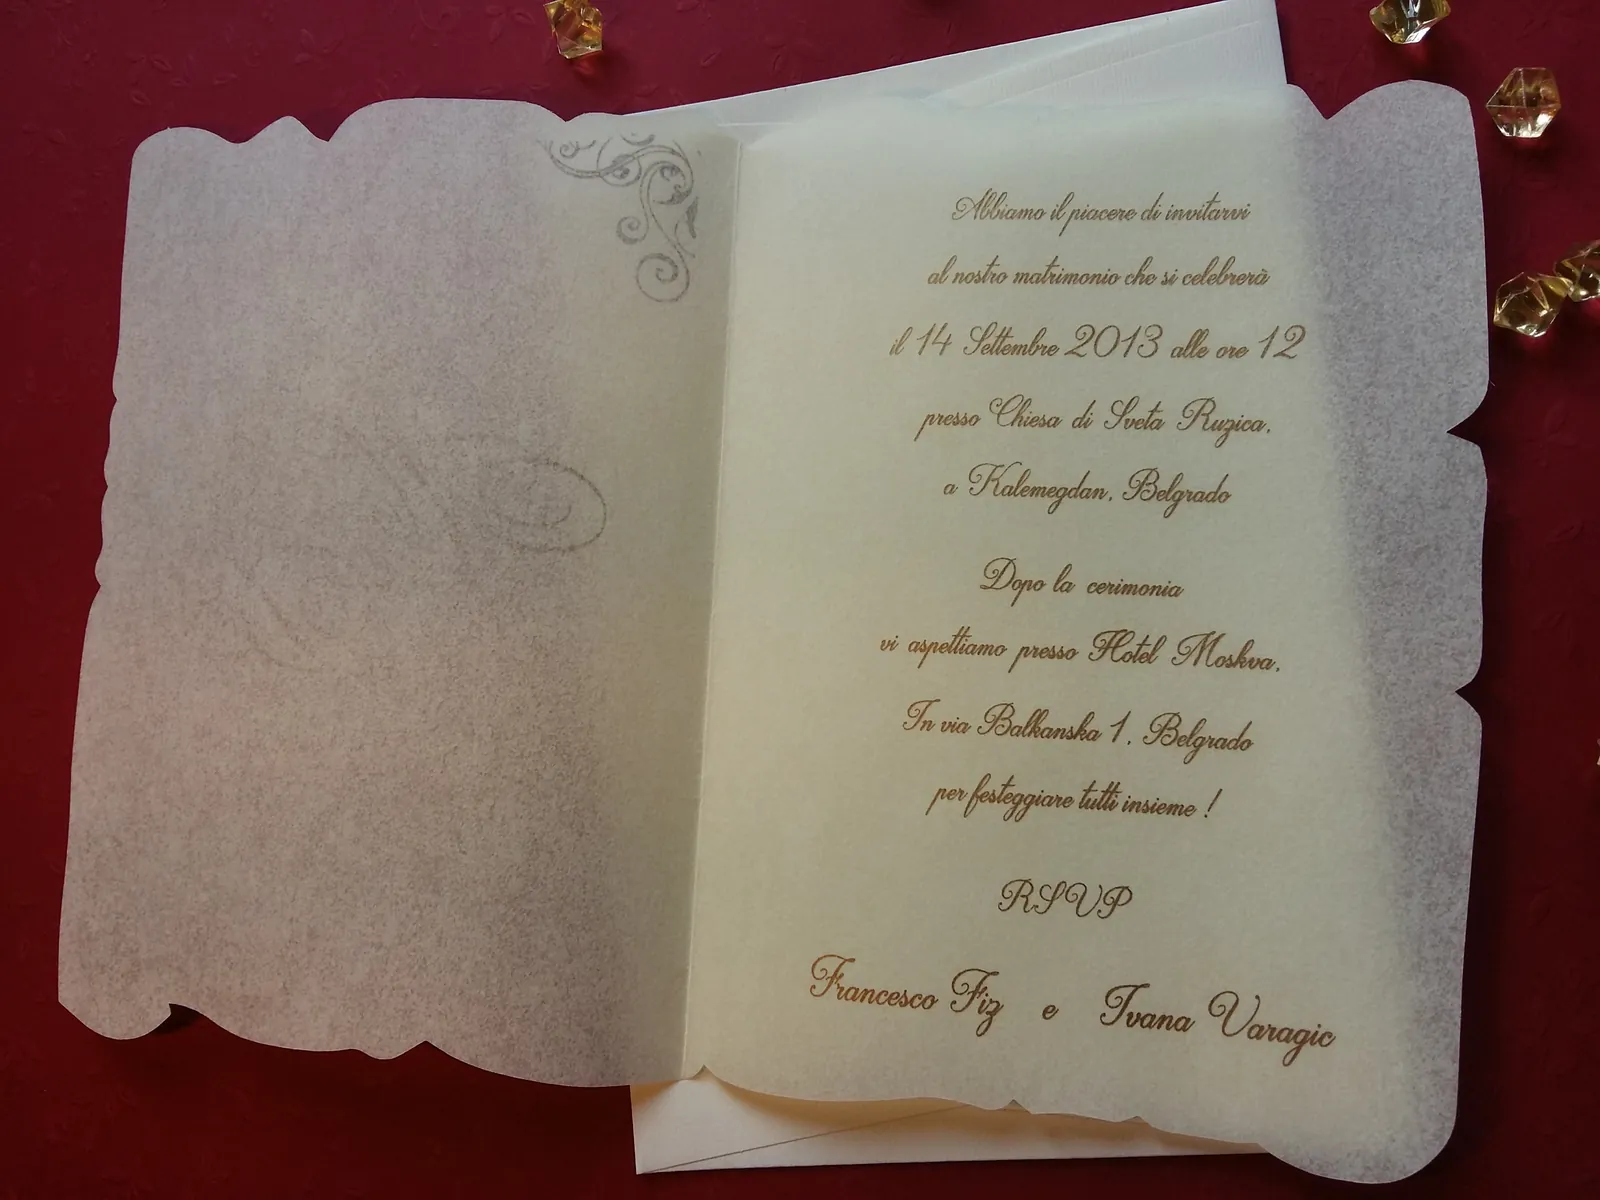 Abbiamo il piacere di invitarvi
al nostro matrimonio che si celebrerà
il 14 Settembre 2013 alle ore 12
presso Chiesa di Sveta Ruzica,
a Kalemegdan, Belgrado
Dopo la cerimonia
vi aspettiamo presso Hotel Moskva,
In via Balkanska 1, Belgrado
per festeggiare tutti insieme !
RSVP
Francesco Fiz e Ivana Varagic